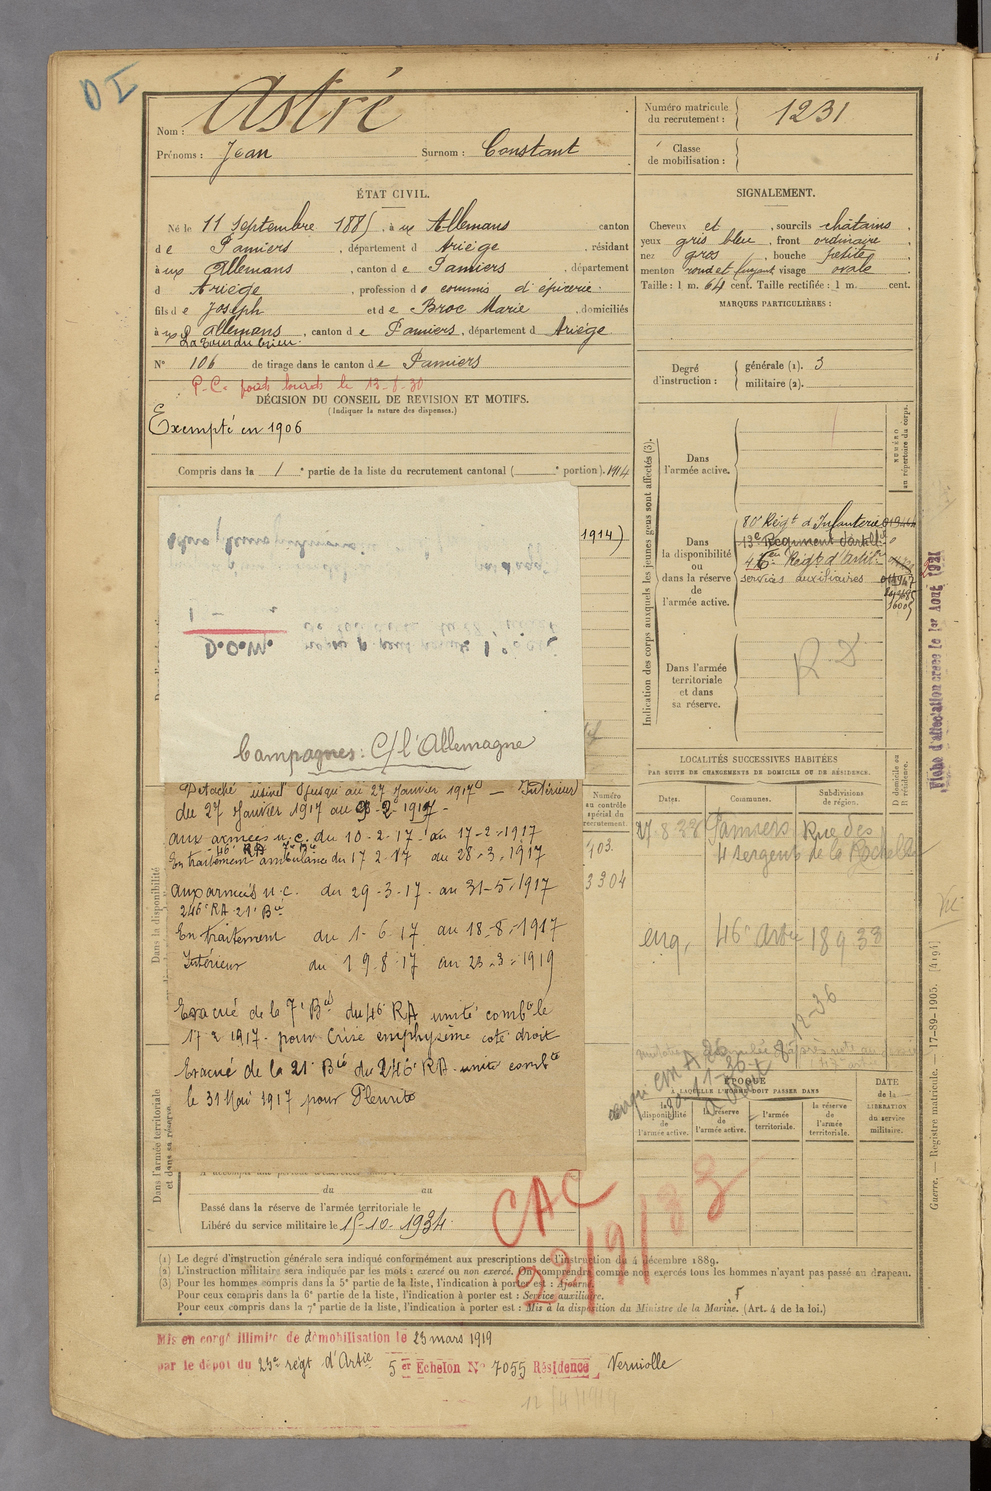 DI
Nom : Astré
Prénoms : Jean Surnom : Constant
Numéro matricule du recrutement : 1231
Classe de mobilisation :
ÉTAT CIVIL.
Né le 11 Septembre 1885, à Allemans canton
de Pamiers, département d Ariège, résidant
à Allemans, canton de Pamiers, département
d Ariège, profession d commis d'épicerie.
fils de Joseph et de Broc Marie, domiciliés
à allemans, canton de Pamiers, département d Ariège
La Tour du Crieu.
N° 106 de tirage dans le canton de Pamiers
P.C. poids lourds le 13-8-30
DÉCISION DU CONSEIL DE REVISION ET MOTIFS.
(Indiquer la nature des dispenses.)
Exempté en 1906
Compris dans la 1e partie de la liste du recrutement cantonal ( e portion). 1914
1914)
SIGNALEMENT.
Cheveux et , sourcils châtains,
yeux gris bleu, front ordinaire,
nez gros, bouche petite,
menton rond et fuyant visage ovale
Taille : 1 m. 64 cent. Taille rectifiée : 1 m. cent.
MARQUES PARTICULIÈRES :
Degré d'instruction : générale (1). 3
militaire (2).
Indication des corps auxquels les jeunes gens sont affectés (3).
NUMÉRO au répertoire du corps.
Dans l'armée active.
Dans la disponibilité ou dans la réserve de l'armée active.
80e Régt d'Infanterie
13e Régiment d'artillie
46e Régt d'artie
services auxiliaires
Dans l'armée territoriale et dans sa réserve.
R D
Fiche d'affectation créée le 1er Août 1921
D.O.M.
Campagnes : C/ l'Allemagne
Détaché usine jusqu'au 27 Janvier 1917 — Intérieur
du 27 Janvier 1917 au 9-2-1917 -
aux armées u.c. du 10-2-17 au 17-2-1917
46e RA 7e Bie
En traitement ambulance du 17 2-17 au 28-3-1917
aux armées u.c. du 29-3-17 au 31-5-1917
246e RA 21e Bie
En traitement du 1-6-17 au 18-8-1917
Intérieur du 19 8-17 au 23-3-1919
Evacué de la 7e Bie du 46e RA unité combte le
17 2 1917 pour Crise emphysème coté droit
Evacué de la 21e Bie du 246e RA unité combte
le 31 Mai 1917 pour Pleurite
Numéro au contrôle spécial du recrutement.
403
3304
LOCALITÉS SUCCESSIVES HABITÉES
PAR SUITE DE CHANGEMENTS DE DOMICILE OU DE RÉSIDENCE.
Dates. Communes. Subdivisions de région.
D domicile ou R résidence.
27-8-38 Pamiers Rue des
4 sergents de la Rochelle
46e Artie 18 9 33
ÉPOQUE
À LAQUELLE L'HOMME DOIT PASSER DANS
la disponibilité de l'armée active.
la réserve de l'armée active.
l'armée territoriale.
la réserve de l'armée territoriale.
DATE de la LIBÉRATION du service militaire.
Dans la disponibilité
Dans l'armée territoriale et dans sa réserve.
du au
Passé dans la réserve de l'armée territoriale le
Libéré du service militaire le 15-10-1934.
CAC
22/9/33
(1) Le degré d'instruction générale sera indiqué conformément aux prescriptions de l'instruction du 4 décembre 1889.
(2) L'instruction militaire sera indiquée par les mots : exercé ou non exercé. On comprendra comme non exercés tous les hommes n'ayant pas passé au drapeau.
(3) Pour les hommes compris dans la 5e partie de la liste, l'indication à porter est : Ajourné.
Pour ceux compris dans la 6e partie de la liste, l'indication à porter est : Service auxiliaire.
Pour ceux compris dans la 7e partie de la liste, l'indication à porter est : Mis à la disposition du Ministre de la Marine. (Art. 4 de la loi.)
Guerre. — Registre matricule. — 17-89-1905. [4194]
Mis en congé illimité de démobilisation le 23 mars 1919
par le dépôt du 23e régt d'Artie 5er Echelon N° 7055 Résidence Verniolle
12/4/1919